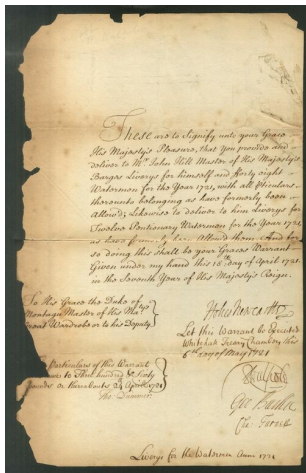 These are to Signify unto your Grace
His Majesty's Pleasure, that you provide and
deliver to Mr. John Hill Master of His Majesty's
Barges Liverys for himself and forty eight
Watermen for the Year 1721, with all
thereunto belonging as have formerly been
Allowed; Likewise to deliver to him Liverys for
Twelve Watermen for the Year 1721
as have formerly been Allowed them: And for
so doing this shall be your Graces Warrant
Given under my hand this 18th day of April 1721.
in the Seventh Year of His Majesty's Reign.
To His Grace the Duke of
Montagu Master of the Great Wardrobe or to his Deputy
Holles Newcastle
Let this Warrant be Executed
Whitehall Treary Chambers this
6th day of May 1721
Particulars of this Warrant
to Three hundred & Sixty
pounds or thereabouts 24 April 1721
Tho: Dummer
R Walpole
Geo Baillie
Cha: Turner
Liverys for the Watermen Anno 1721